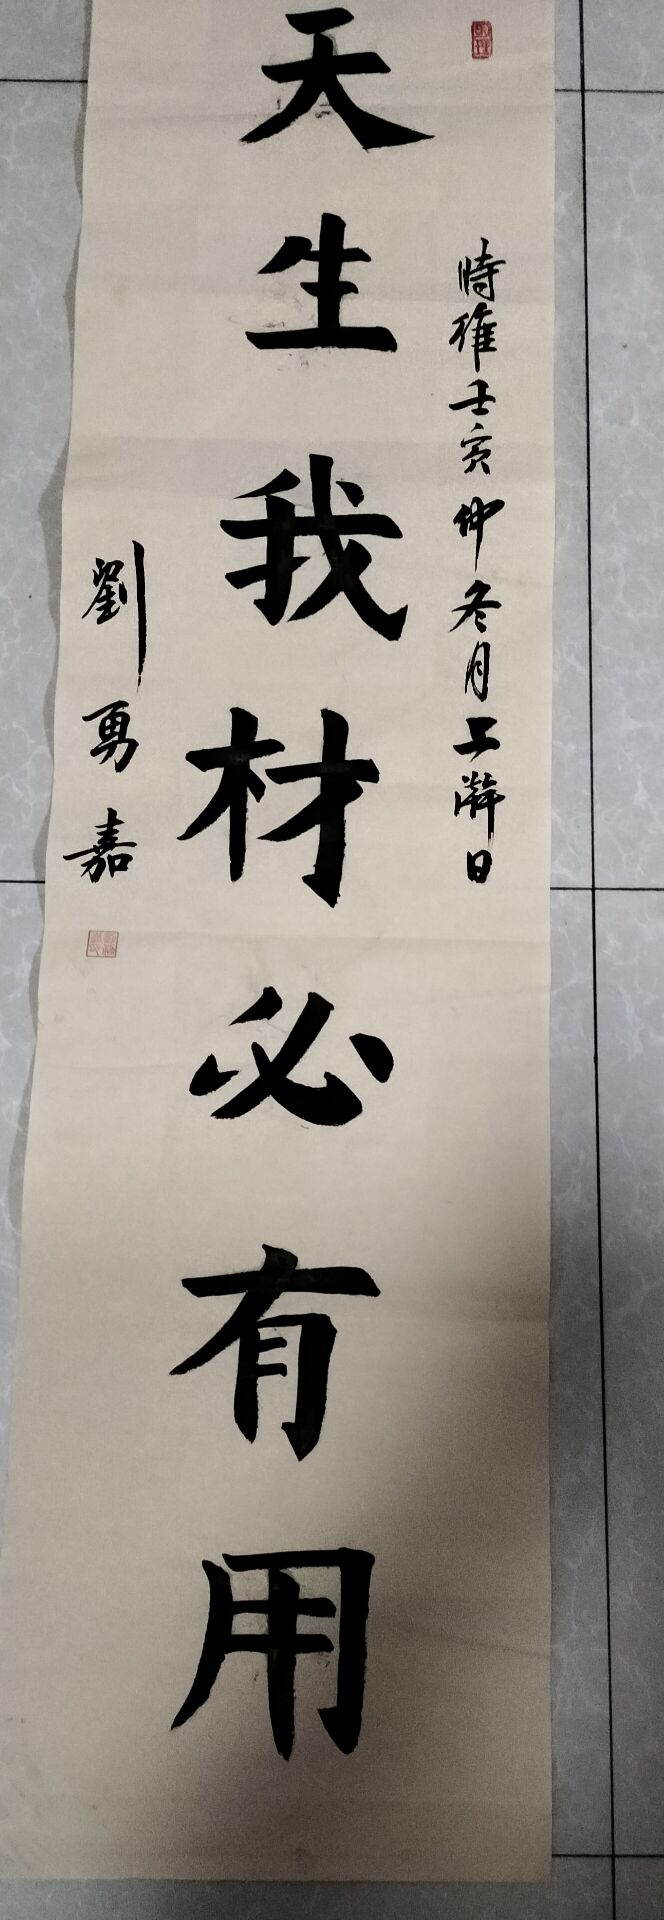 时维壬寅仲冬月上澣日
天生我材必有用
劉勇嘉